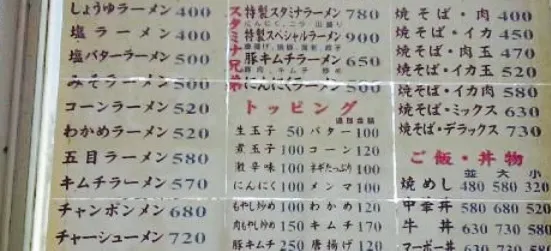 しょうゆラーメン 400
塩ラーメン 400
塩バターラーメン 500
みそラーメン 500
コーンラーメン 520
わかめラーメン 520
五目ラーメン 580
キムチラーメン 570
チャンポンメン 680
チャーシューメン 720
スタミナ兄弟
特製スタミナラーメン 780
にんにく、ニラ、山盛り
特製スペシャルラーメン 900
豚キムチラーメン 650
豚肉、キムチ
にんにくラーメン 500
トッピング
生玉子 50
煮玉子 100
激辛味 100
にんにく 100
もやし炒め 100
肉もやし炒め 150
豚キムチ 250
バター 100
コーン 120
ネギたっぷり 100
メンマ 100
わかめ 120
のり 100
唐揚げ
焼そば・肉 400
焼そば・イカ 450
焼そば・肉玉 470
焼そば・イカ玉 520
焼そば・イカ肉 580
焼そば・ミックス 630
焼そば・デラックス 730
ご飯・丼物
並 大 小
焼めし 480 580 320
中華丼 580 680
牛丼 580 680
マーボー丼